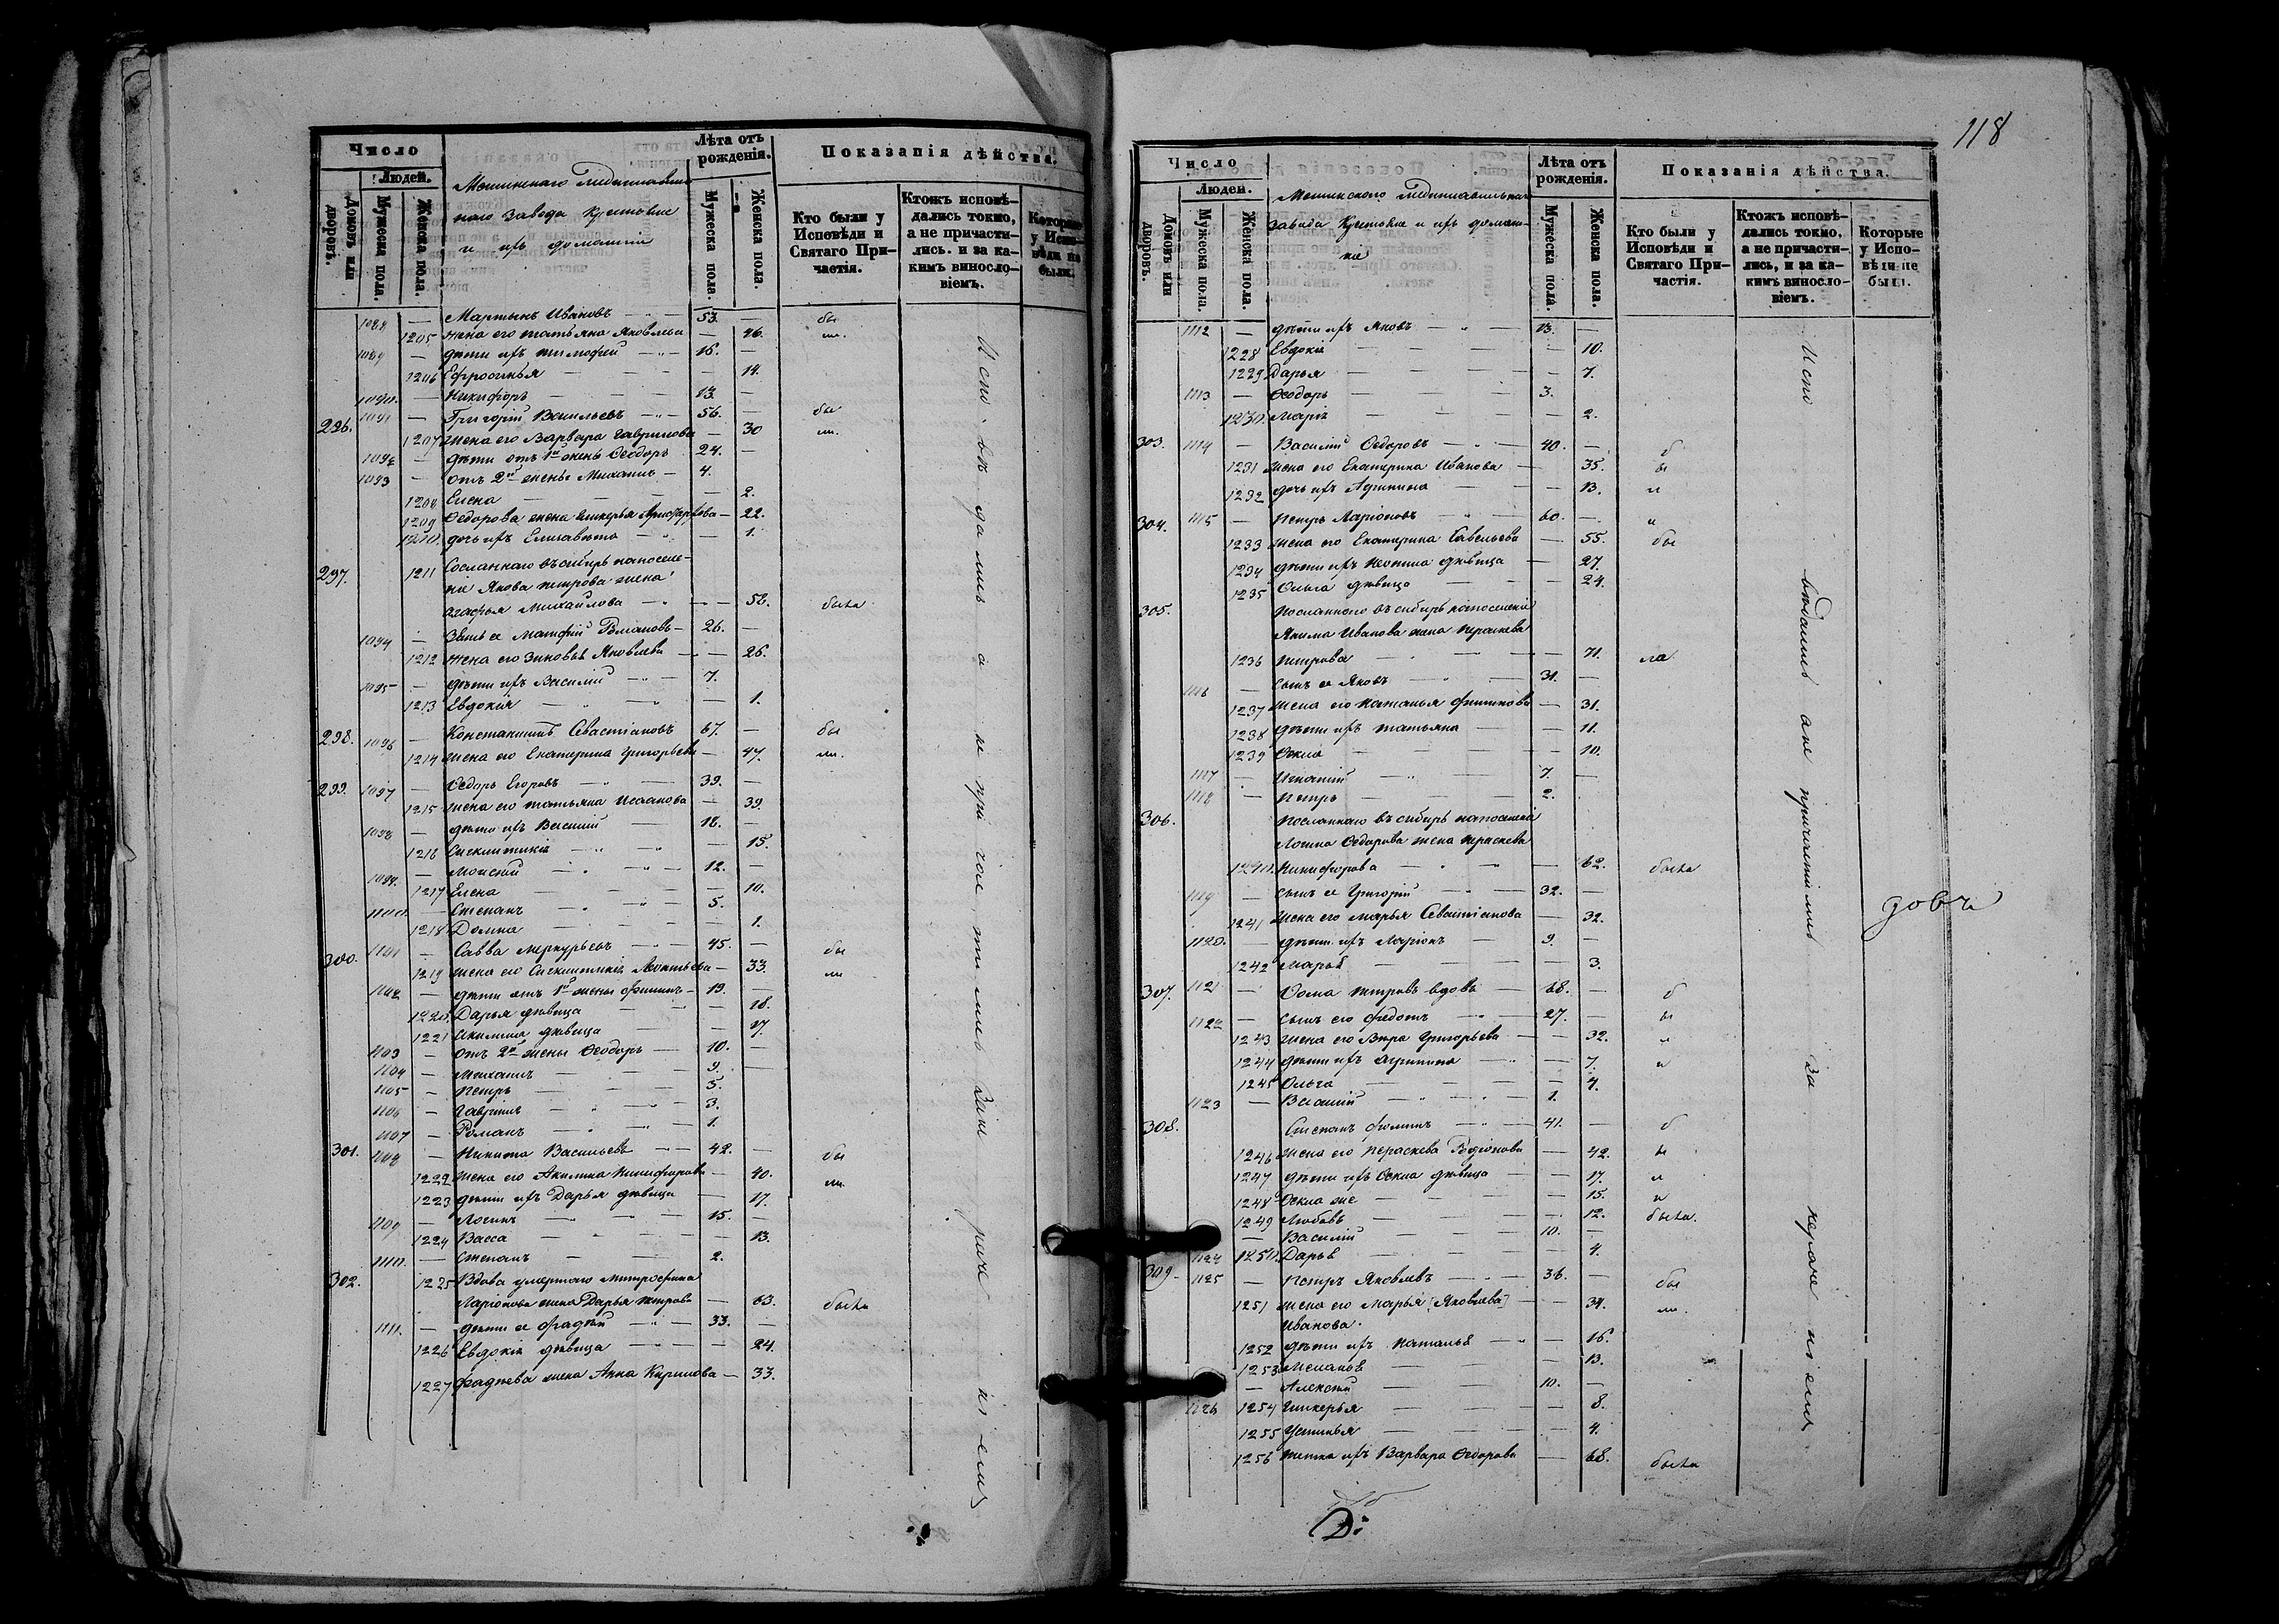 Число
Людей.
Домовъ или дворовъ.
Мужеска пола.
Женска пола.
завода Крестьяне
и ихъ домашніе
Лѣта отъ рожденія.
Мужеска пола.
Женска пола.
Показанія дѣйства.
Кто были у Исповѣди и Святаго Причастія.
Ктожъ исповѣдались токмо, а не причастились. и за какимъ винословіемъ.
Которые у Исповѣди не были.
1088 — Мартынъ Ивановъ — 53. — бы
1205 жена его Татьяна Яковлева — 46. ли.
1089 — дѣти ихъ Тимофей — 16. —
1206 Ефросинья — 14.
1090. — Никифоръ — 13. —
296. 1091 — Григорій Васильевъ — 56. — бы
1207 жена его Варвара Гаврилова — 30 ли.
1092 — дѣти отъ 1й жены Ѳеодоръ 24. —
1093 — отъ 2й жены Михаилъ — 4.
1208 Елена — 2.
1209 Ѳедорова жена Гликерья — 22.
1210. дочь ихъ Елизавета — 1.
297. 1211 Сосланнаго въ сибирь на поселе-
ніе Якова Петрова жена
Агафья Михайлова — 58. была
1094 — Зять ее Матфей Романовъ — 26. —
1212 жена его Зиновья Яковлева — 26.
1095 — дѣти ихъ Василій — 7.
1213 Евдокія — 1.
298. 1096 — Константинъ Севастіановъ 67. — бы
1214 жена его Екатерина Григорьева — 47. ли.
299. 1097 — Ѳедоръ Егоровъ — 39. —
1215 жена его Татьяна Исаакова — 39.
1098 — дѣти ихъ Василій — 18. —
1216 Синклитикія — 15.
1099. — Моисей — 12. —
1217 Елена — 10.
1100. — Степанъ — 5.
1218 Домна — 1.
300. 1101 — Савва Меркурьевъ — 45. — бы
1219 жена его Синклитикія Леонтьева — 33. ли
1102 — дѣти отъ 1й жены Филипъ — 19. —
1220. Дарья дѣвица — 18.
1221 Акилина дѣвица — 17.
1103 — отъ 2й жены Ѳеодоръ — 10. —
1104 — Михаилъ — 9. —
1105 — Петръ — 5.
1106 — Гавріилъ — 3.
1107 — Романъ — 1.
301. 1108 — Никита Васильевъ — 42. — бы
1222 жена его Акилина Никифорова — 40. ли.
1223 дѣти ихъ Дарья дѣвица — 17.
1109 — Логинъ — 15. —
1224 Васса — 13.
1110. — Степанъ — 2.
302. 1225 Вдова умершаго Митрофана
Ларіонова жена Дарья Петрова — 63. была
1111. — дѣти ее Фадѣй — 33. —
1226 Евдокія дѣвица — 24.
1227 Фадѣева жена Анна Кирилова — 33.
118
Число
Людей.
Домовъ или дворовъ.
Мужеска пола.
Женска пола.
завода Крестьяне и ихъ домаш-
ніе
Лѣта отъ рожденія.
Мужеска пола.
Женска пола.
Показанія дѣйства.
Кто были у Исповѣди и Святаго Причастія.
Ктожъ исповѣдались токмо, а не причастились, и за какимъ винословіемъ.
Которые у Исповѣди не были.
1112 — дѣти ихъ Яковъ — 13. —
1228 Евдокія — 10.
1229 Дарья — 7.
1113 — Ѳеодоръ — 3.
1230. Марія — 2.
303. 1114 — Василій Ѳедоровъ — 40. — б
1231 жена его Екатерина Иванова — 35. ы
1232 дочь ихъ Агрипина — 13. л
304. 1115 — Петръ Ларіоновъ — 60. — и
1233 жена его Екатерина Савельева — 55. бы
1234 дѣти ихъ Неонила дѣвица — 27.
1235 Ольга дѣвица — 24.
305. Посланнаго въ сибирь на поселеніе
Якима Иванова жена Пераскева
1236 Петрова — 71. ла.
1116 — Сынъ ее Яковъ — 31. —
1237 жена его Наталья — 31.
1238 дѣти ихъ Татьяна — 11.
1239 Ѳекла — 10.
1117 — Игнатій — 7. —
1118 — Петръ — 2.
306. Посланнаго въ сибирь на поселеніе
Логина Ѳедорова жена Пераскева
1240. Никифорова — 62. была
1119 — Сынъ ее Григорій — 32. —
1241 жена его Марья Севастіанова — 32.
1120. — дѣти ихъ Ларіонъ — 9. —
1242 Марья — 3.
307. 1121 — Ѳома Петровъ вдовъ — 68. — б
1122 — Сынъ его Федотъ — 27. — ы
1243 жена его Вѣра Григорьева — 32. л
1244 дѣти ихъ Агрипина — 7. и
1245 Ольга — 4.
1123 — Василій — 1.
308. Степанъ Фоминъ — 41. — б
1246 жена его Пераскева Родіонова — 42. ы
1247 дѣти ихъ Ѳекла дѣвица — 17. л
1248 Ѳекла же — 15. и
1249 Любовь — 12. была.
— Василій — 10. —
1124 1250. Дарья — 4.
309. 1125 — Петръ Яковлевъ — 36. — бы
1251 жена его Марья [Яковлева] — 34. ли.
Иванова.
1252 дѣти ихъ Наталья — 16.
1253 Меланья — 13.
— Алексѣй — 10. —
1126 1254 Гликерья — 8.
1255 Устинья — 4.
1256 тетка ихъ Варвара Ѳедорова — 68. была